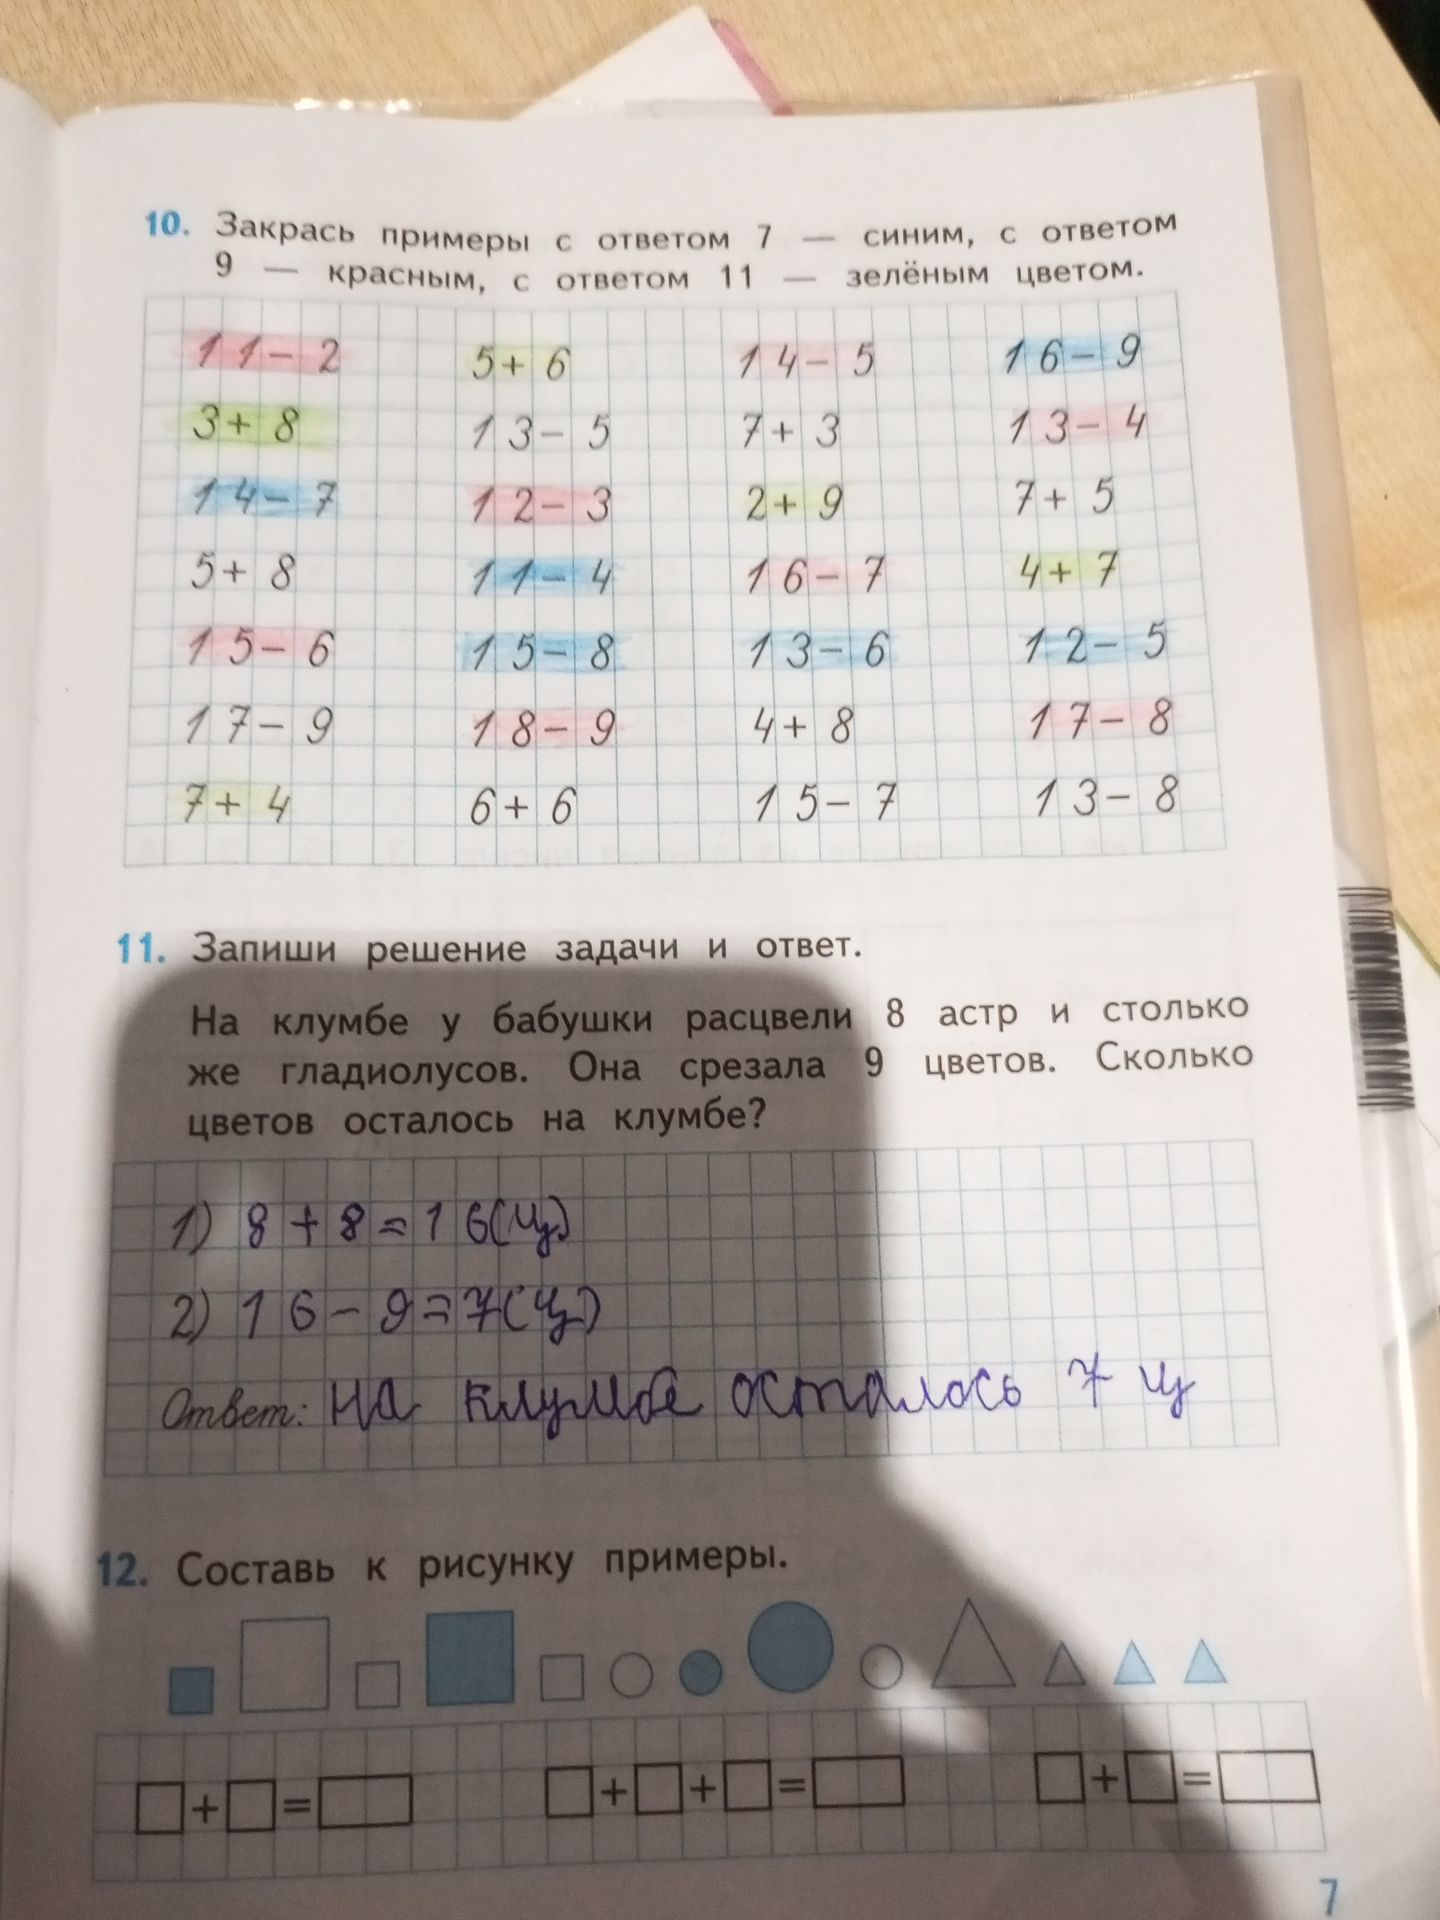 10. Закрась примеры с ответом 7 — синим, с ответом
9 — красным, с ответом 11 — зелёным цветом.
11 − 2 5 + 6 14 − 5 16 − 9
3 + 8 13 − 5 7 + 3 13 − 4
14 − 7 12 − 3 2 + 9 7 + 5
5 + 8 11 − 4 16 − 7 4 + 7
15 − 6 15 − 8 13 − 6 12 − 5
17 − 9 18 − 9 4 + 8 17 − 8
7 + 4 6 + 6 15 − 7 13 − 8
11. Запиши решение задачи и ответ.
На клумбе у бабушки расцвели 8 астр и столько
же гладиолусов. Она срезала 9 цветов. Сколько
цветов осталось на клумбе?
1) 8 + 8 = 16 (ц)
2) 16 − 9 = 7 (ц)
Ответ: на клумбе осталось 7 ц
12. Составь к рисунку примеры.
□ + □ = □ □ + □ + □ = □ □ + □ = □
7